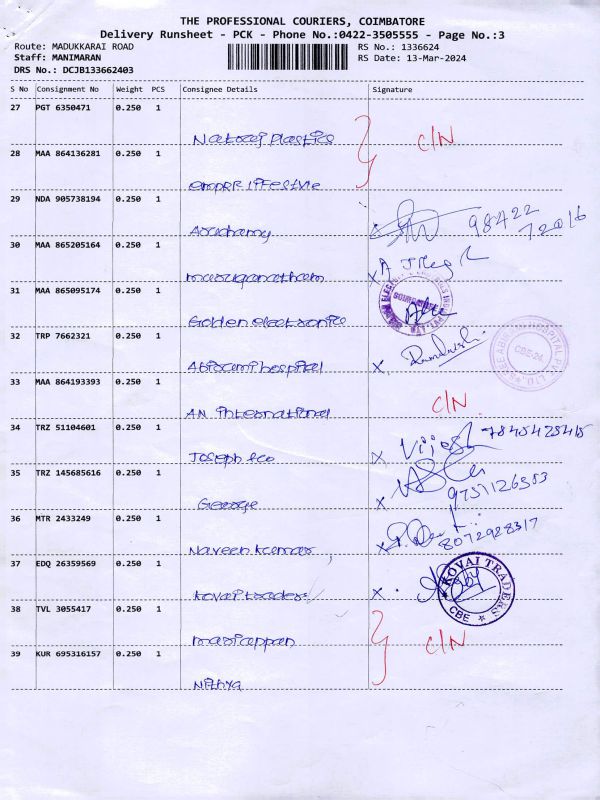 THE PROFESSIONAL COURIERS, COIMBATORE
Delivery Runsheet - PCK - Phone No.:0422-3505555 - Page No.:3
Route: MADUKKARAI ROAD RS No.: 1336624
Staff: MANIMARAN RS Date: 13-Mar-2024
DRS No.: DCJB133662403
S No Consignment No Weight PCS Consignee Details Signature
27 PGT 6350471 0.250 1
Nataraj Plastics C/N
28 MAA 864136281 0.250 1
empRR lifestyle
29 NDA 905738194 0.250 1
Aruchamy x 98422 72016
30 MAA 865205164 0.250 1
maruganatham x
31 MAA 865095174 0.250 1
Golden electronics
32 TRP 7662321 0.250 1
Abirami hospital x CBE-24
33 MAA 864193393 0.250 1
AN international C/N
34 TRZ 51104601 0.250 1
Joseph &co x Vijesh 7845425415
35 TRZ 145685616 0.250 1
George x 9751126353
36 MTR 2433249 0.250 1
Naveen kumar x 8072928317
37 EDQ 26359569 0.250 1
kovai traders x KOVAI TRADERS CBE
38 TVL 3055417 0.250 1
mariappan C/N
39 KUR 695316157 0.250 1
Nithya